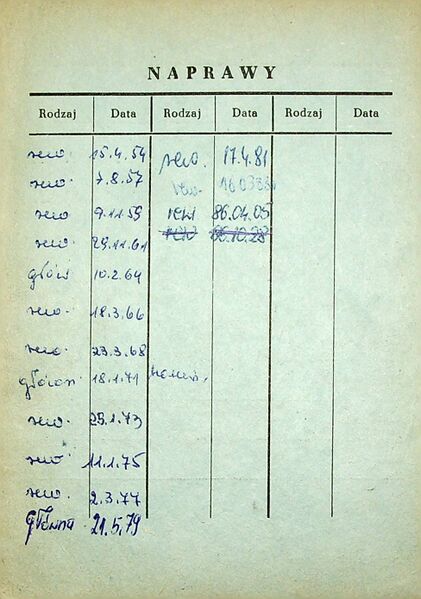 NAPRAWY
Rodzaj Data Rodzaj Data Rodzaj Data
rew. 15.4.54 rew. 17.4.81
rew. 7.8.57 rew.
rew 9.11.59 rew 86.04.05
rew. 29.11.61 rew 86.10.28
głów 10.2.64
rew. 18.3.66
rew. 23.3.68
główn 18.1.71
rew. 25.1.73
rew 11.1.75
rew. 2.3.77
główna 21.5.79